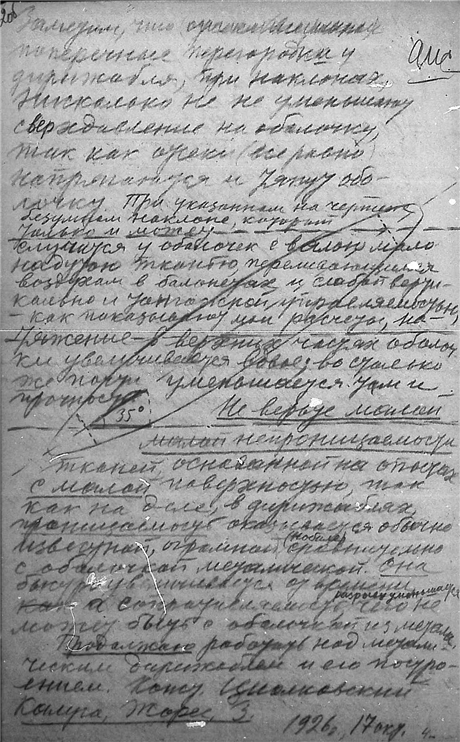 20б
Заметим, что
поперечные перегородки у
дирижабля, при наклонах,
нисколько не уменьшают
сверхдавление на оболочку,
так как отсеки (все равно)
напрягаются и тянут обо-
лочку. При указанном на чертеже
безумном наклоне, который
только и может
случиться у оболочек с вялою мало
надутою тканью, переливающимся
воздухом в балонетах и слабой верти-
кальной управляемостью,
- как показывают мои расчеты, на-
тяжение в верхних частях оболоч-
ки увеличивается вдвое; во столько
же почти уменьшается там и
прочность
35°
Не верьте малой
малой непроницаемости
тканей, основанной на опытах
с малой поверхностью, так
как на деле, в дирижаблях,
проницаемость оказывается обычно
известной, огромной, сравнительно
(Нобиле)
с оболочкой металической. Она
быстро увеличивается от времени
а сопротивление разрыву уменьшается, чего не
может быть с оболочкой из метала.
Продолжаю работать над метали-
ческим дирижаблем и его постро-
ением. Конст. Циолковский
Калуга, Жорес, 3.
1926г, 17 окт.